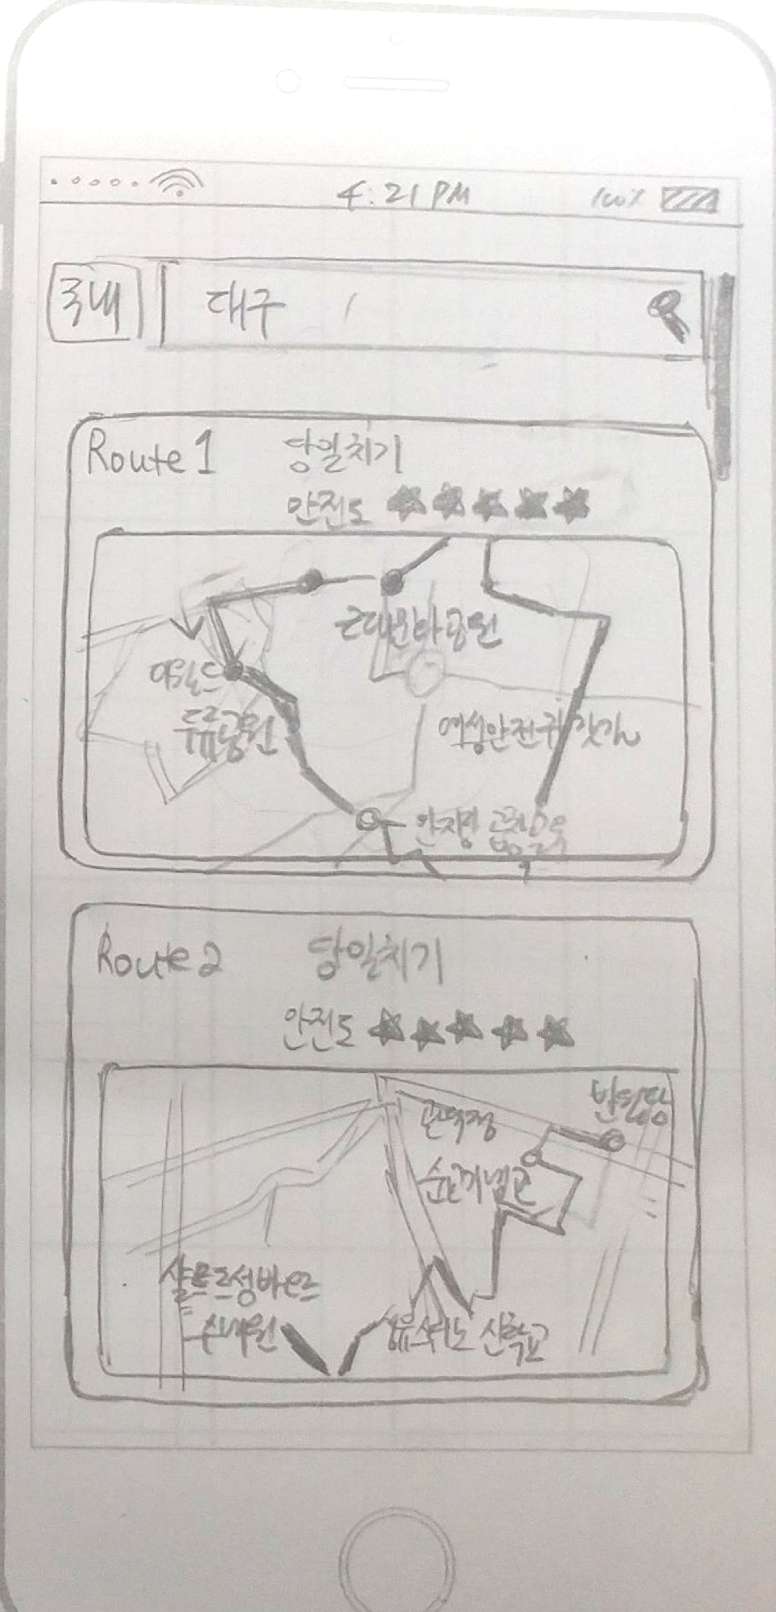 4:21 PM 100%
국내 대구
Route 1 당일치기
안전도 ★★★★★
근대문화공원
이월드
두류공원
여성안전귀갓길
안지랑 곱창골목
Route 2 당일치기
안전도 ★★★★★
반월당
관덕정
순교기념관
샬트르성바오로
수녀원
성유스티노 신학교